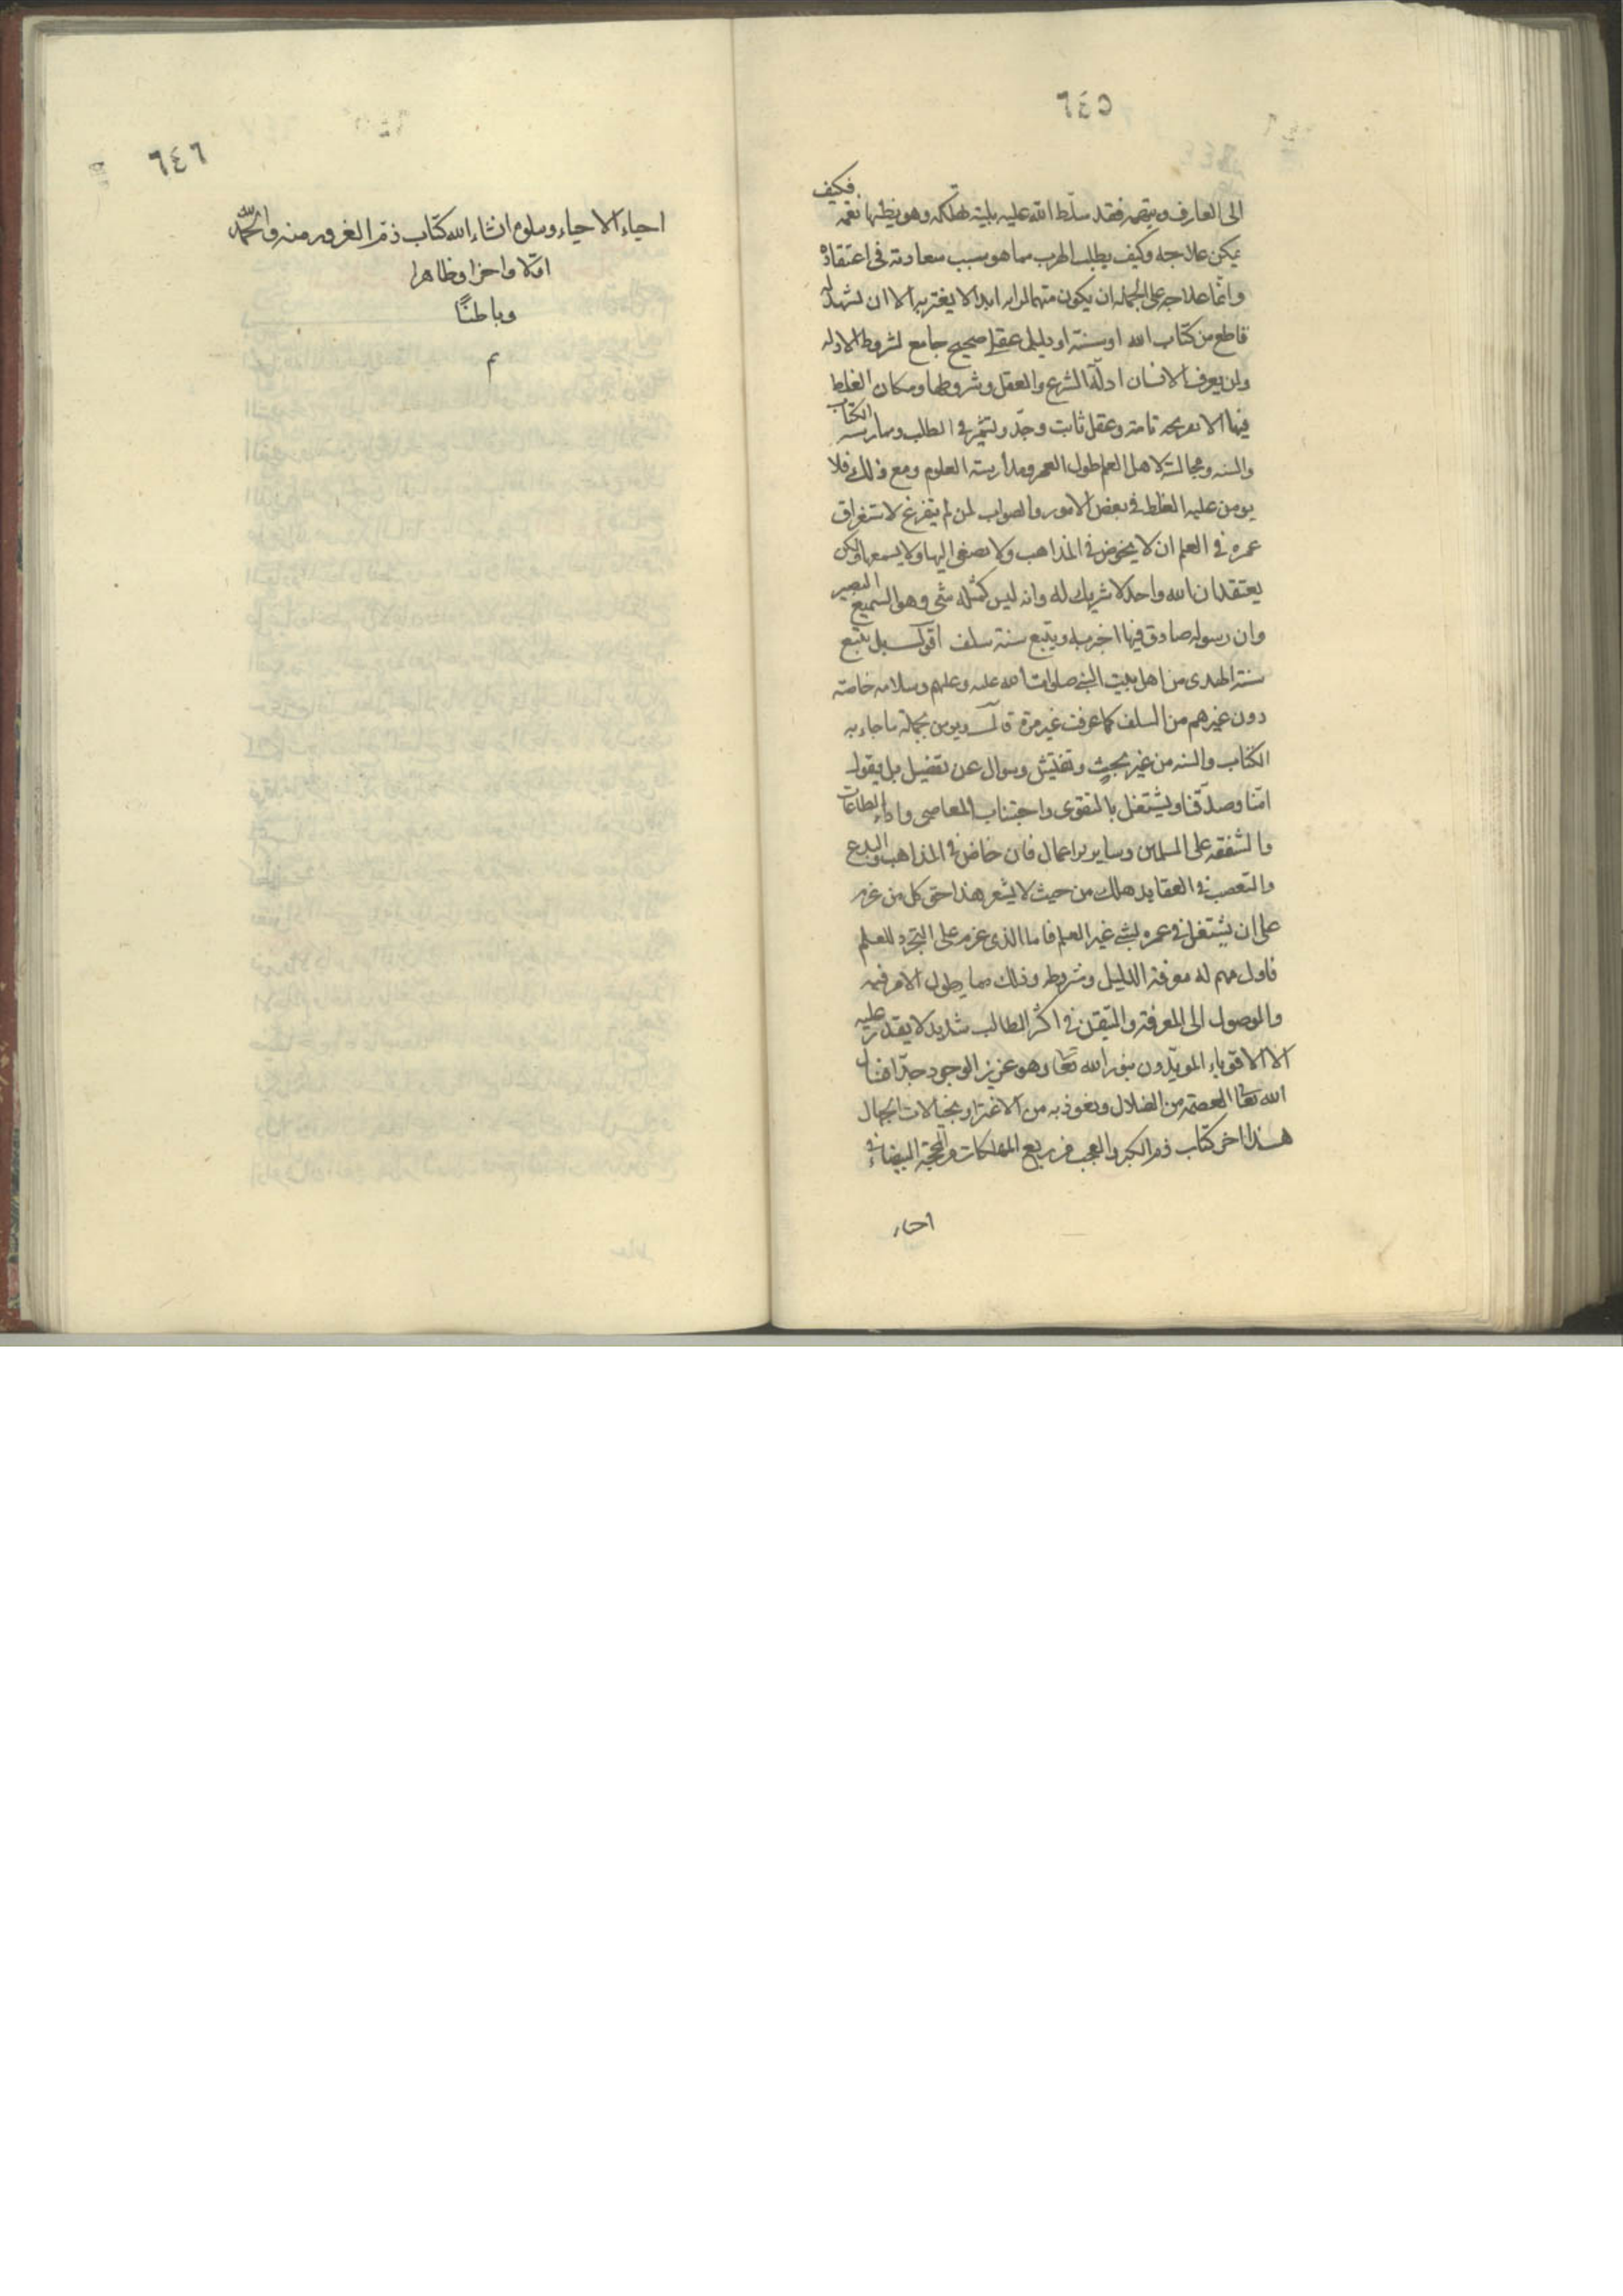 ٦٤٥
الى العارف ويتهمه فقد سلّط الله عليه بلية تهلكه وهو يظنها نعمه فكيف
يمكن علاجه وكيف يطلب الهرب مما هو سبب سعادته فى اعتقاده
وانما علاجه على الجمله ان يكون متهما لرايه ابدا لا يغتر به الا ان يشهد له
قاطع من كتاب الله او سنته او دليل عقلى صحيح جامع لشروط الادله
ولن يعرف الانسان ادلّة الشرع والعقل وشروطها ومكان الغلط
فيها الا بقريحه تامة وعقل ثابت وجدّ وتشمّر فى الطلب وممارسه الكتاب
والسنه ومجالسة لاهل العلم طول العمر ومدارسة العلوم ومع ذلك فلا
يومن عليه الغلط فى بعض الامور والصواب لمن لم يتفرغ لاستغراق
عمره فى العلم ان لا يخوض فى المذاهب ولا يصغى اليها ولا يسمعها ولكن
يعتقد ان الله واحد لا شريك له وانه ليس كمثله شى وهو السميع البصير
وان رسوله صادق فيما اخبر به ويتبع سنة سلف اقول بل يتبع
سنة الهدى من اهل بيت النبى صلوات الله عليه وعليهم وسلامه خاصة
دون غيرهم من السلف كما عرفت غير مرة قال ويومن بجملة ما جاء به
الكتاب والسنه من غير بحثٍ وتفتيش وسوال عن تفصيل بل يقول
امنّا وصدّقنا ويشتغل بالتقوى واجتناب المعاصى واداء الطاعات
والشفقه على المسلمين وساير اعمال فان خاض فى المذاهب والبدع
والتعصب فى العقايد هلك من حيث لا يشعر هذا حق كل من عزم
على ان يشتغل فى عمره بشى غير العلم فاما الذى عزم على التجرد للعلم
فاول مهم له معرفة الدليل وشروطه وذلك مما يطول الامر فيه
والوصول الى المعرفة والتيقن فى اكثر المطالب شديد لا يقدر عليه
الا الاقوياء المويّدون بنور الله تعالى وهو عزيز الوجود جدّا فنسال
الله تعالى العصمة من الضلال ونعوذ به من الاغترار بخيالات الجهال
هذا اخر كتاب ذم الكبر والعجب من ربع المهلكات من المحجة البيضاء فى
احياء
٦٤٦
احياء الاحياء ويتلوه انشاء الله كتاب ذمّ الغرور منه والحمد لله
اوّلا واخرا وظاهرا
وباطنًا
م